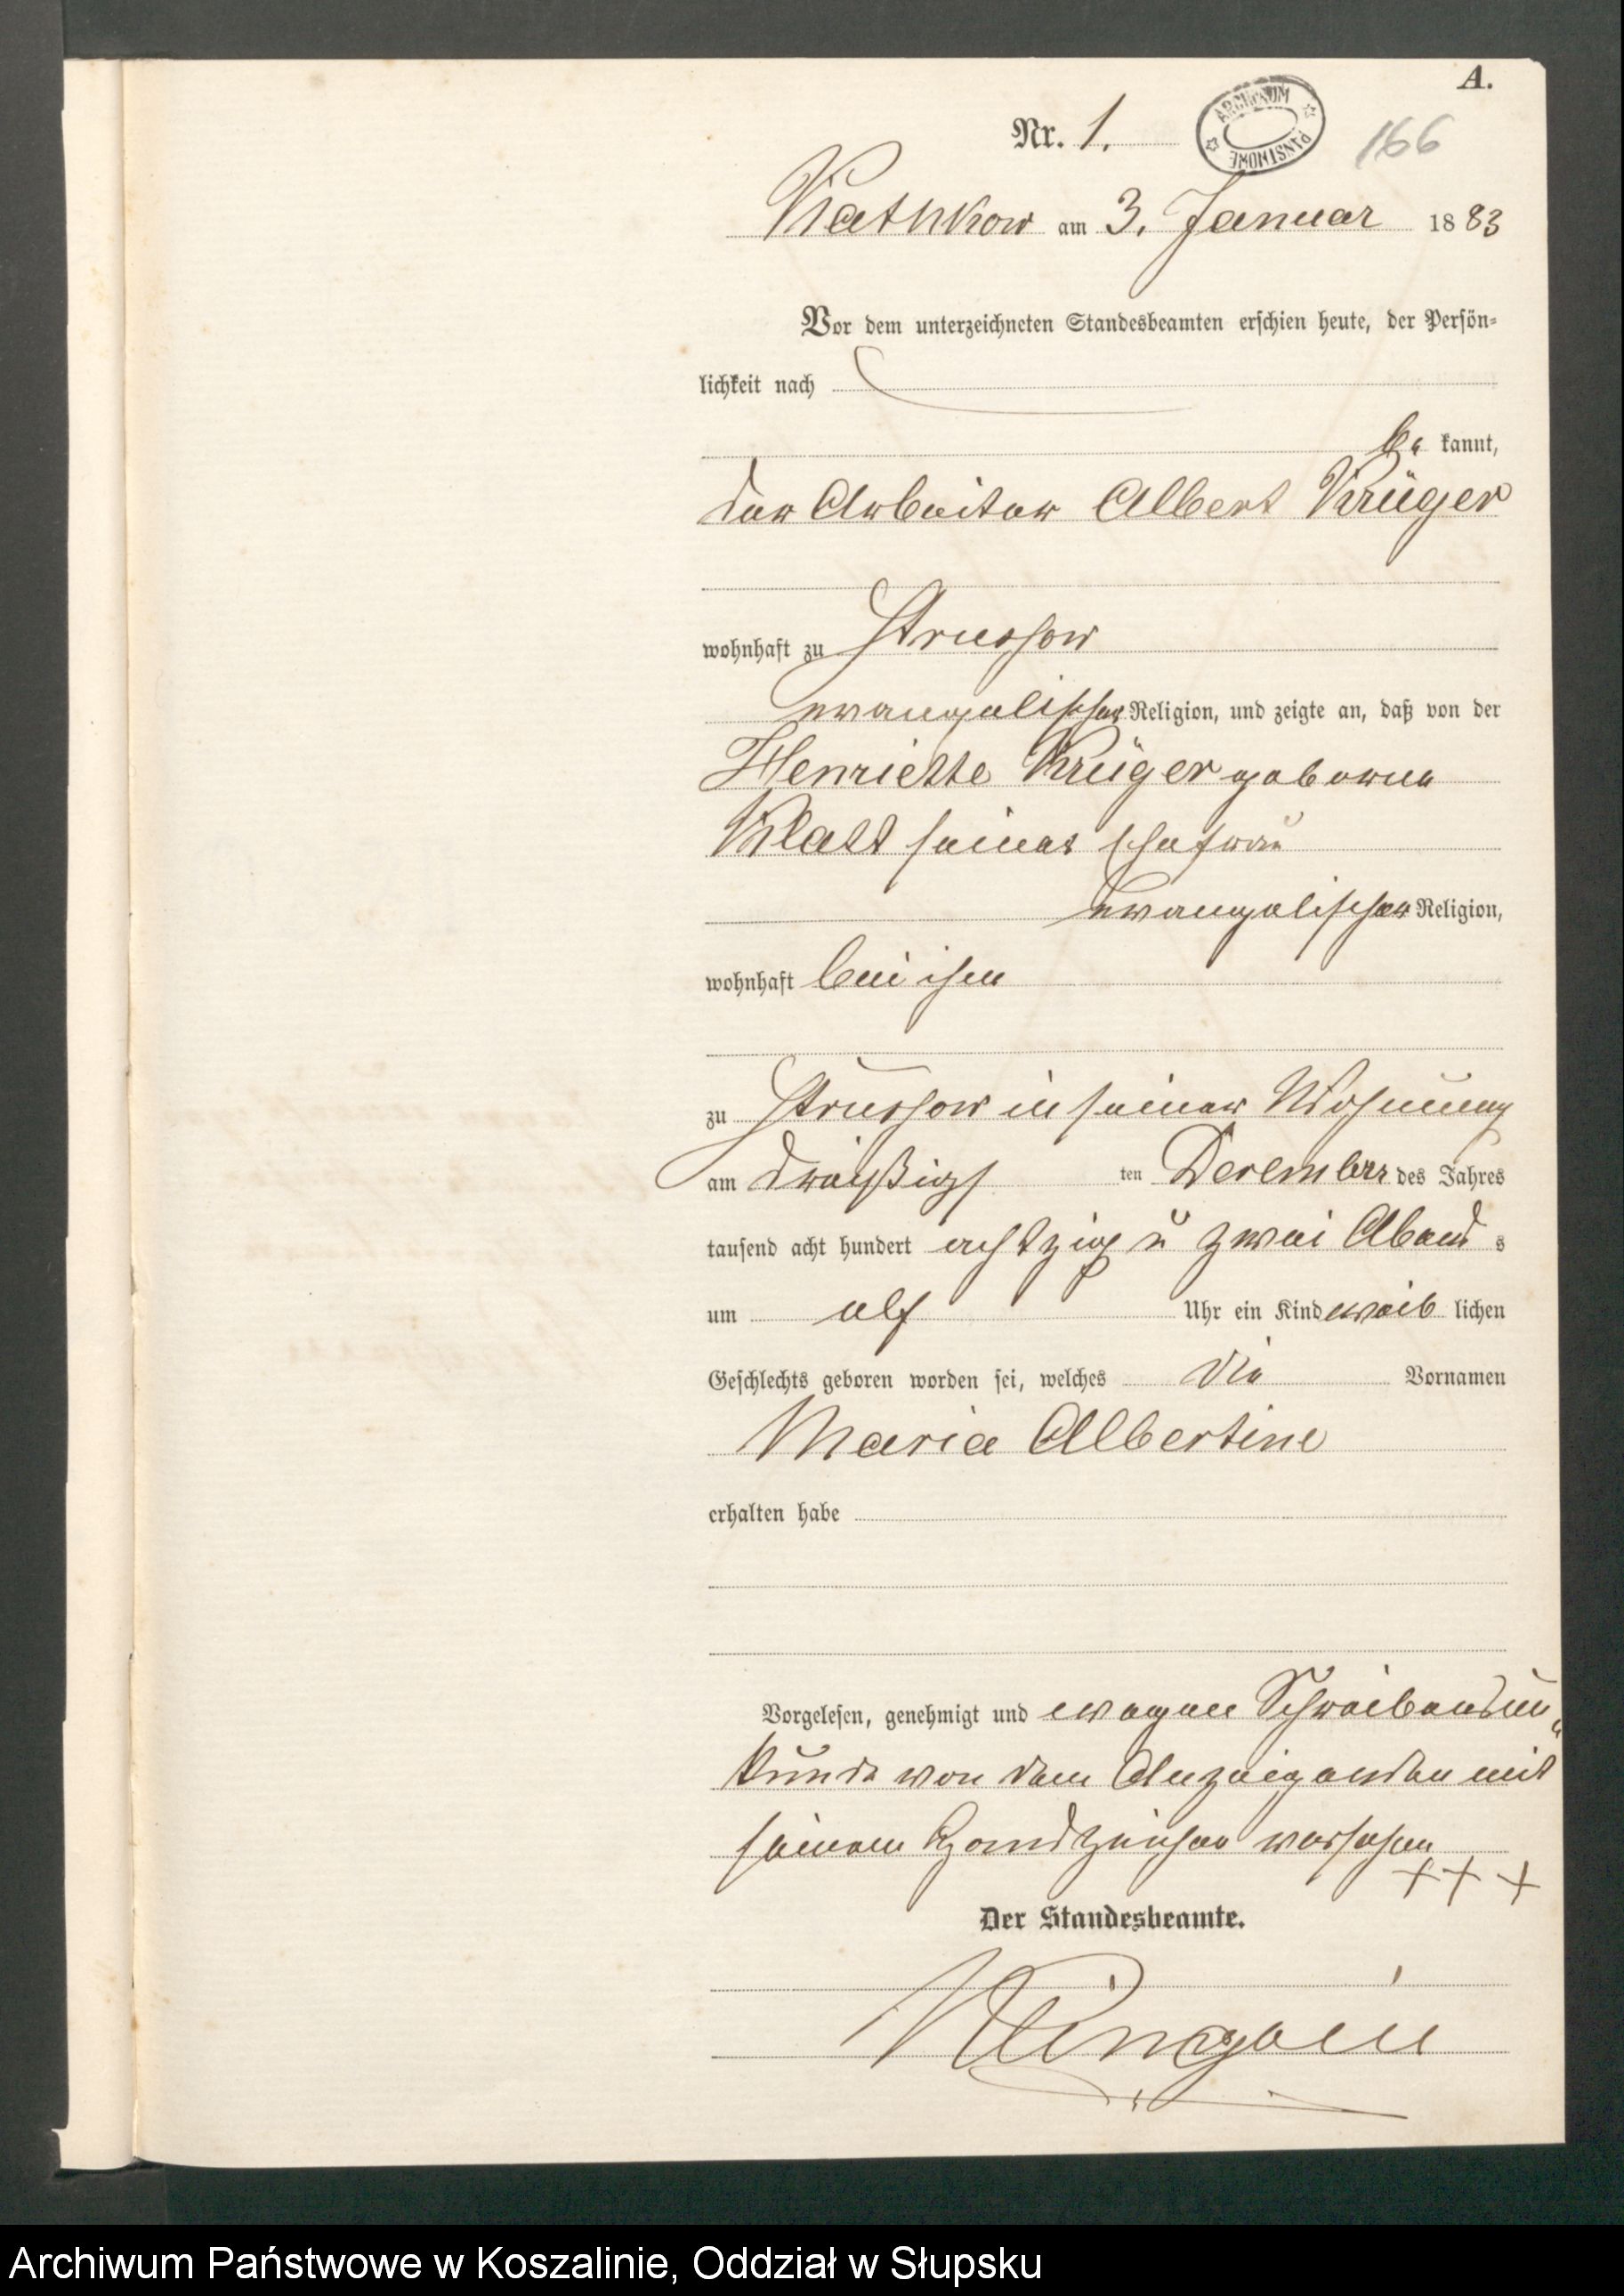 A.
Nr. 1.
ARCHIWUM PAŃSTWOWE
166
Kathkow am 3. Januar 1883
Vor dem unterzeichneten Standesbeamten erschien heute, der Persön-
lichkeit nach
be kannt,
der Arbeiter Albert Krüger
wohnhaft zu Strussow
evangelischer Religion, und zeigte an, daß von der
Henriette Krüger geborne
Klatt seiner Ehefrau
evangelischer Religion,
wohnhaft bei ihm
zu Strussow in seiner Wohnung
am dreißigs ten Dezember des Jahres
tausend acht hundert achtzig u zwei Abend s
um elf Uhr ein Kind weib lichen
Geschlechts geboren worden sei, welches die Vornamen
Maria Albertine
erhalten habe
Vorgelesen, genehmigt und wegen Schreibensun-
kunde von dem Anzeigenden mit
seinem Handzeichen versehen
+++
Der Standesbeamte.
Archiwum Państwowe w Koszalinie, Oddział w Słupsku